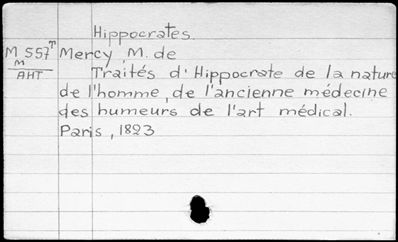 Hippocrates.
M 557 T Mercy, M. de
M
AHT Traités d'Hippocrate de la nature
de l'homme, de l'ancienne médecine
des humeurs de l'art médical.
Paris, 1823